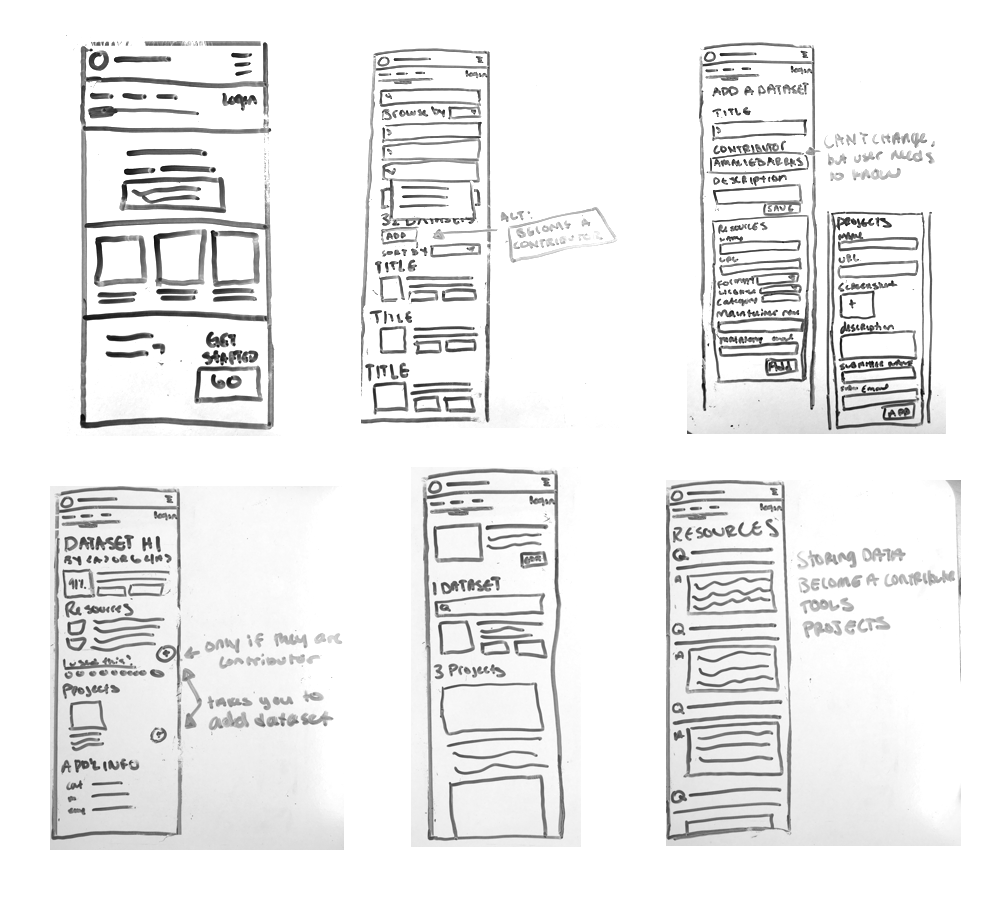 Login
GET
STARTED
GO
Login
BROWSE by
32 DATASETS
ADD
SORT BY
TITLE
TITLE
TITLE
ALT:
BECOME A
CONTRIBUTOR
Login
ADD A DATASET
TITLE
CONTRIBUTOR
DESCRIPTION
SAVE
RESOURCES
NAME
URL
FORMAT
LICENSE
category
Add
CAN'T CHANGE,
but user needs
to know
PROJECTS
NAME
URL
Screenshot
+
description
Email
ADD
Login
DATASET #1
91%
Resources
I used this!
Projects
ADD'L INFO
only if they are
contributor
takes you to
add dataset
Login
1 DATASET
3 Projects
Login
RESOURCES
Q
A
Q
A
Q
A
Q
STORING DATA
BECOME A CONTRIBUTOR
TOOLS
PROJECTS